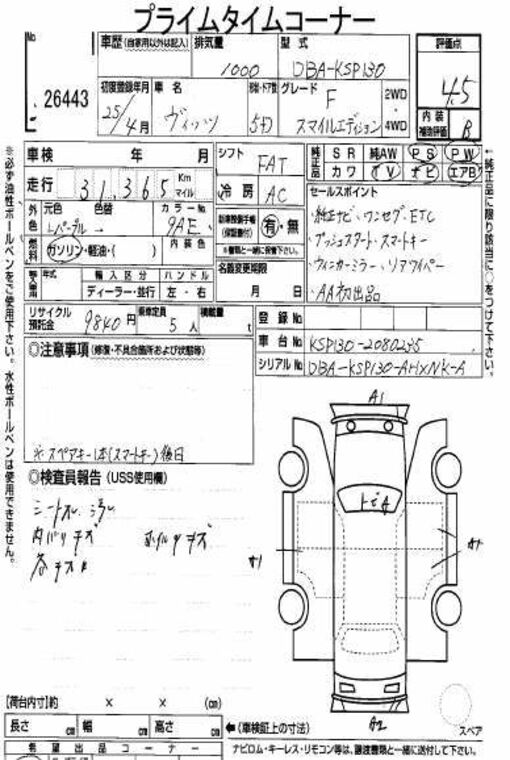 プライムタイムコーナー
No 26443
車歴 (自家用以外は記入) 排気量 1000 型式 DBA-KSP130
評価点 4.5
内装補助評価 B
初度登録年月 25/4月 車名 ヴィッツ 形状・ドア数 5D グレード F スマイルエディション 2WD・4WD
車検 年 月
シフト FAT
純正品 SR 純AW PS PW
カワ TV ナビ エアB
走行 31,365 Km マイル
冷房 AC
セールスポイント
・純正ナビ・ワンセグ・ETC
・プッシュスタート・スマートキー
・ウィンカーミラー・リアワイパー
・AA初出品
外装色 元色 Lパープル 色替 カラーNo 9AE
新車整備手帳(保証書付) 有・無
※書類と一緒に保管下さい。
燃料 ガソリン・軽油・( ) 内装色
名義変更期限 月 日
輸入車 年式 輸入区分 ディーラー・並行 ハンドル 左・右
リサイクル預託金 9840円 乗車定員 5人 積載量 t
登録No
車台No KSP130-2080235
シリアルNo DBA-KSP130-AHXNK-A
◎注意事項 (修復・不具合箇所および状態等)
※スペアキー1本(スマートキー)後日
◎検査員報告 (USS使用欄)
シートスレ、汚れ
内バリキズ ホイルキズ
各キズ
A1
トビA
A1
A1
A2
スペア
【荷台内寸】約 × × (㎝)
長さ ㎝ 幅 ㎝ 高さ ㎝ ←(車検証上の寸法)
希望出品コーナー
ナビロム・キーレス・リモコン等は、譲渡書類と一緒に送付して下さい。
※必ず油性ボールペンをご使用下さい。水性ボールペンは使用できません。
純正品に限り該当に○をつけて下さい。